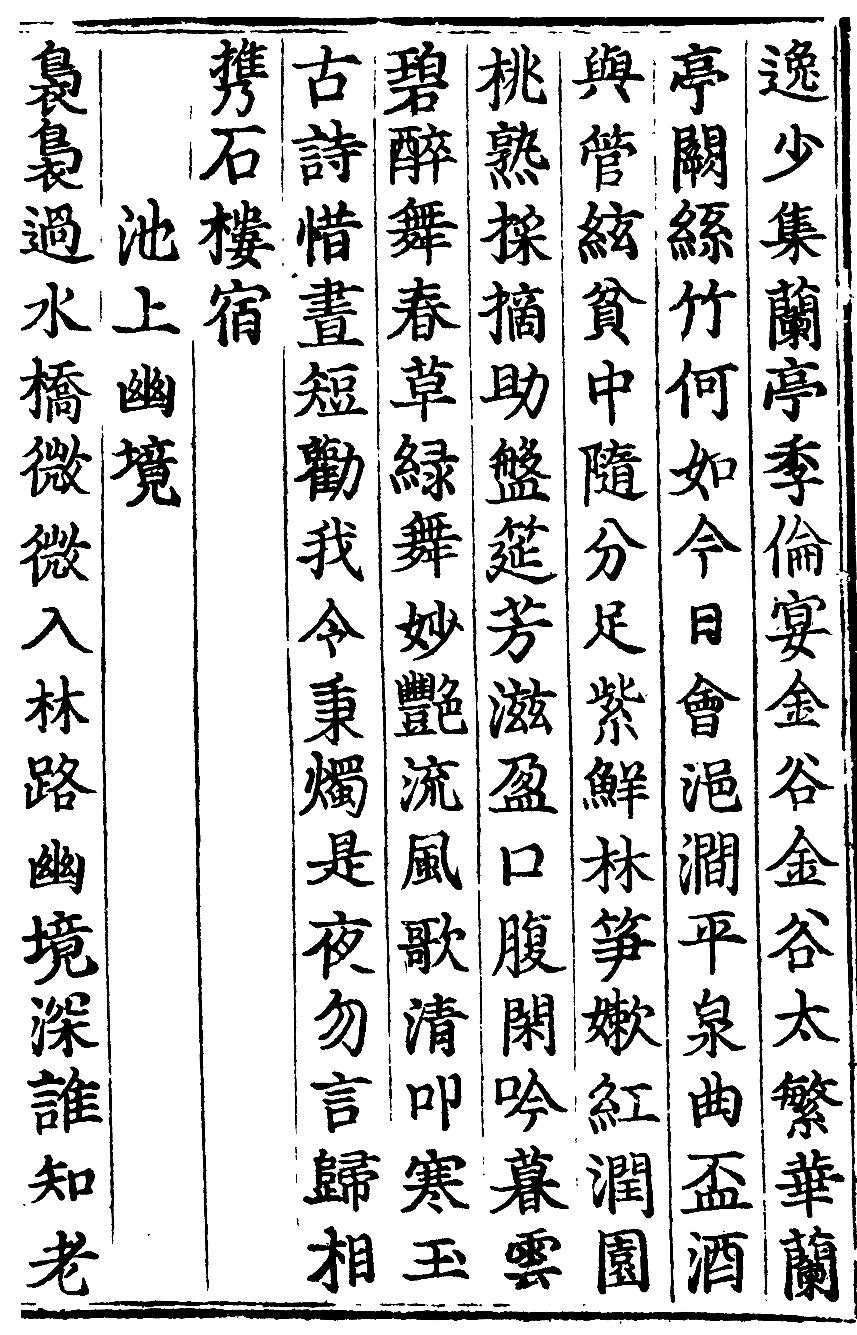 逸少集蘭亭季倫宴金谷金谷太繁華蘭
亭闕絲竹何如今日會浥澗平泉曲盃酒
與管絃貧中隨分足紫鮮林笋嫰紅潤園
桃熟採摘助盤筵芳滋盈口腹閑吟暮雲
碧醉舞春草緑舞妙豔流風歌清叩寒玉
古詩惜晝短勸我令秉燭是夜勿言歸相
携石樓宿
池上幽境
裊裊過水橋微微入林路幽境深誰知老